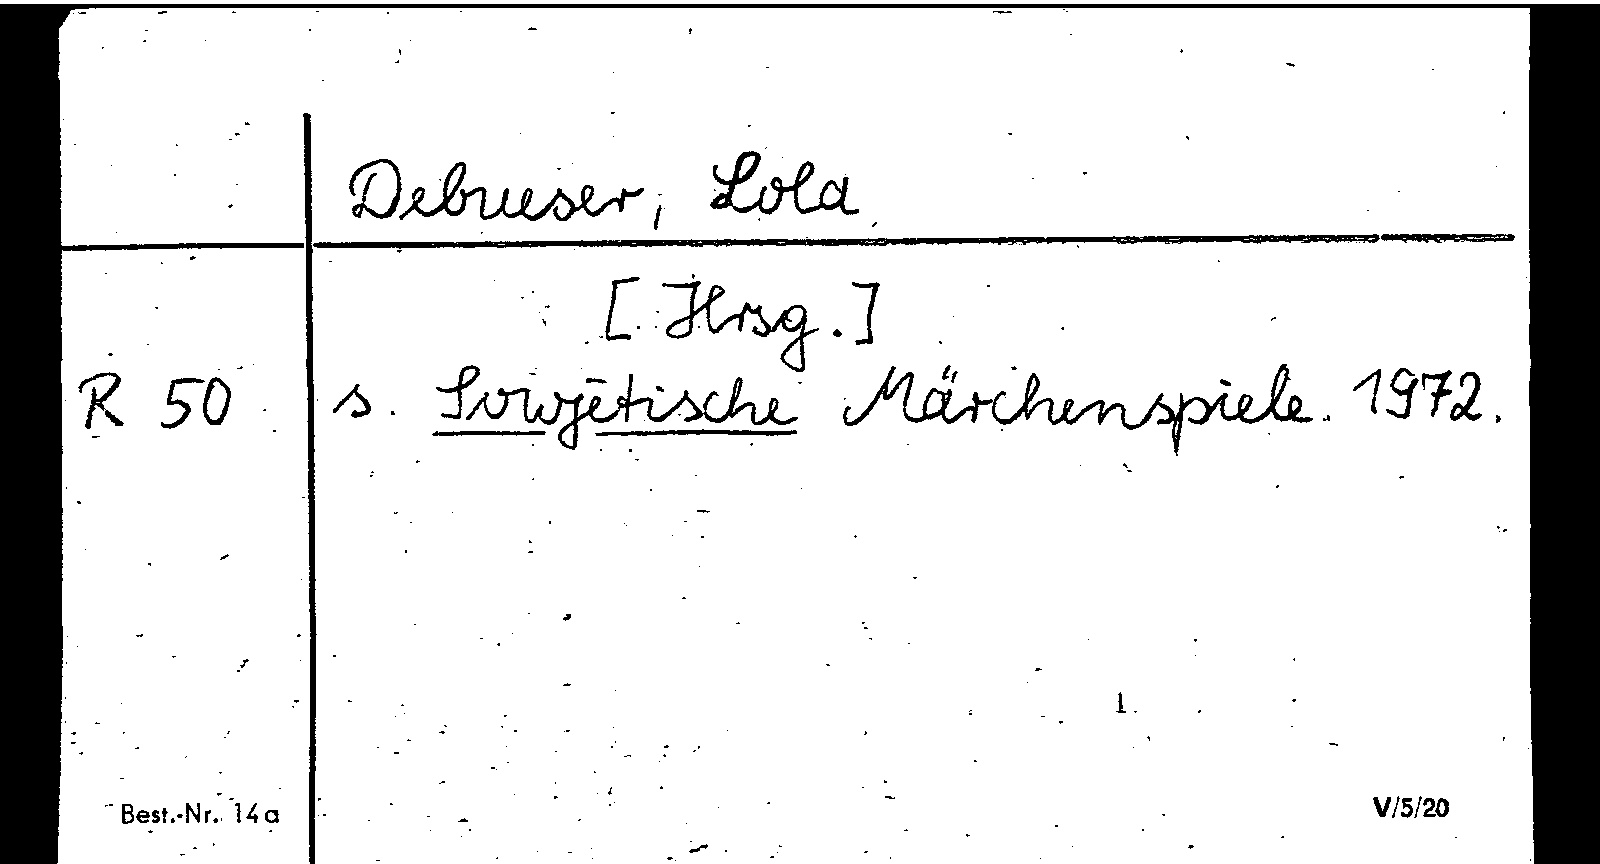 Debrueser, Lola
[Hrsg.]
R 50 s. Sowjetische Märchenspiele. 1972.
1
Best.-Nr. 14a V/5/20